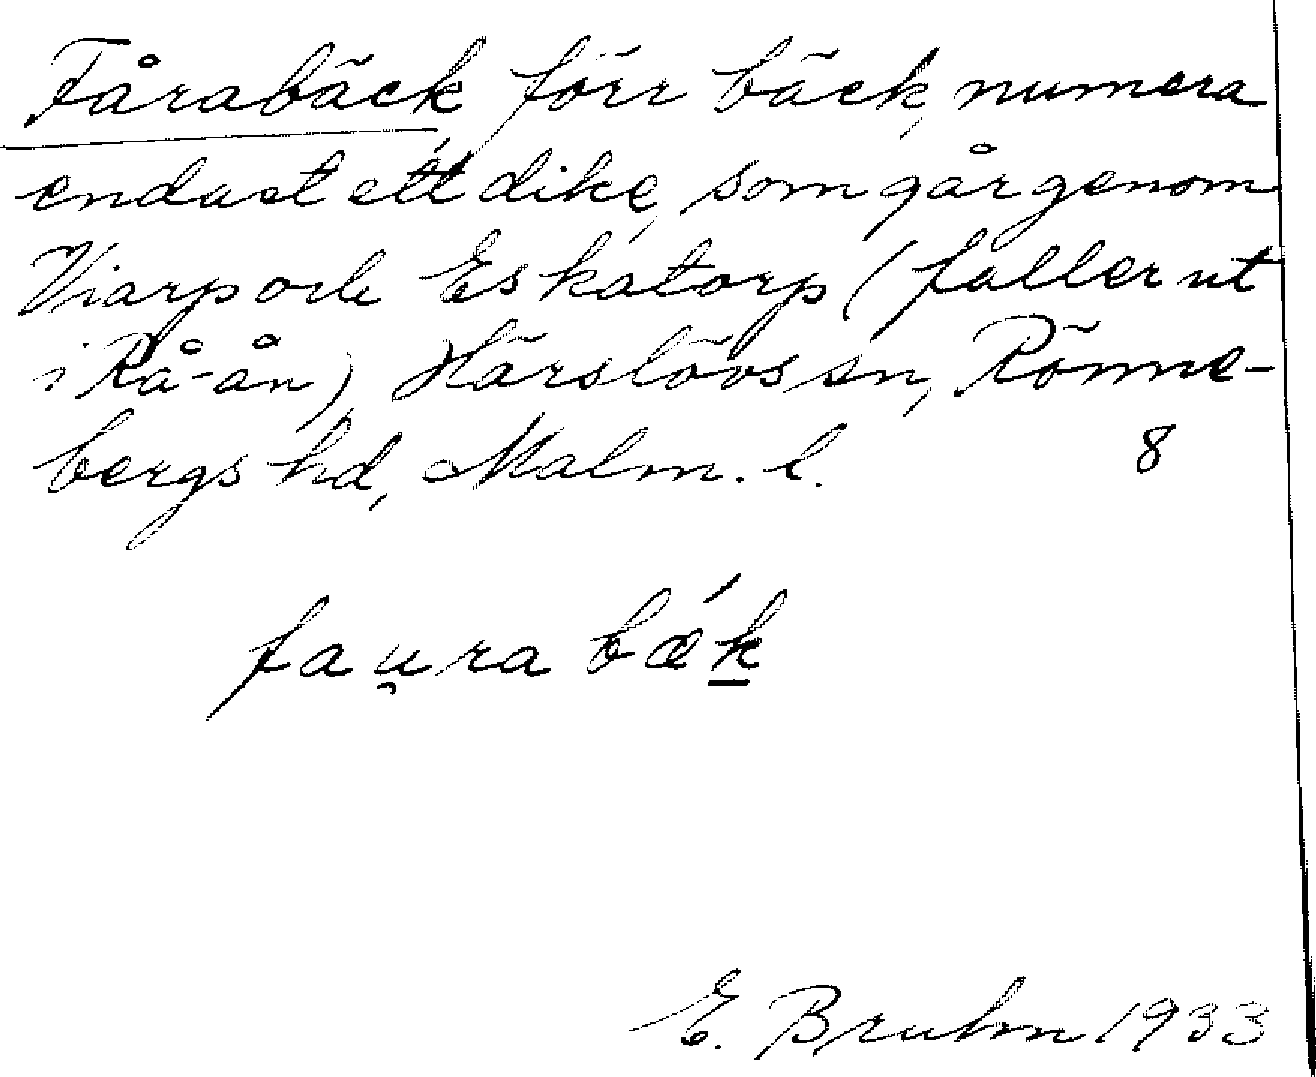 Fårabäck, förr bäck, numera
endast ett dike, som går genom
Viarp och Eskatorp (faller ut
i Rå-ån) Härslövs sn, Rönne-
bergs hd, Malm. l. 8
fau̯ra bæ´k
E. Bruhn 1933